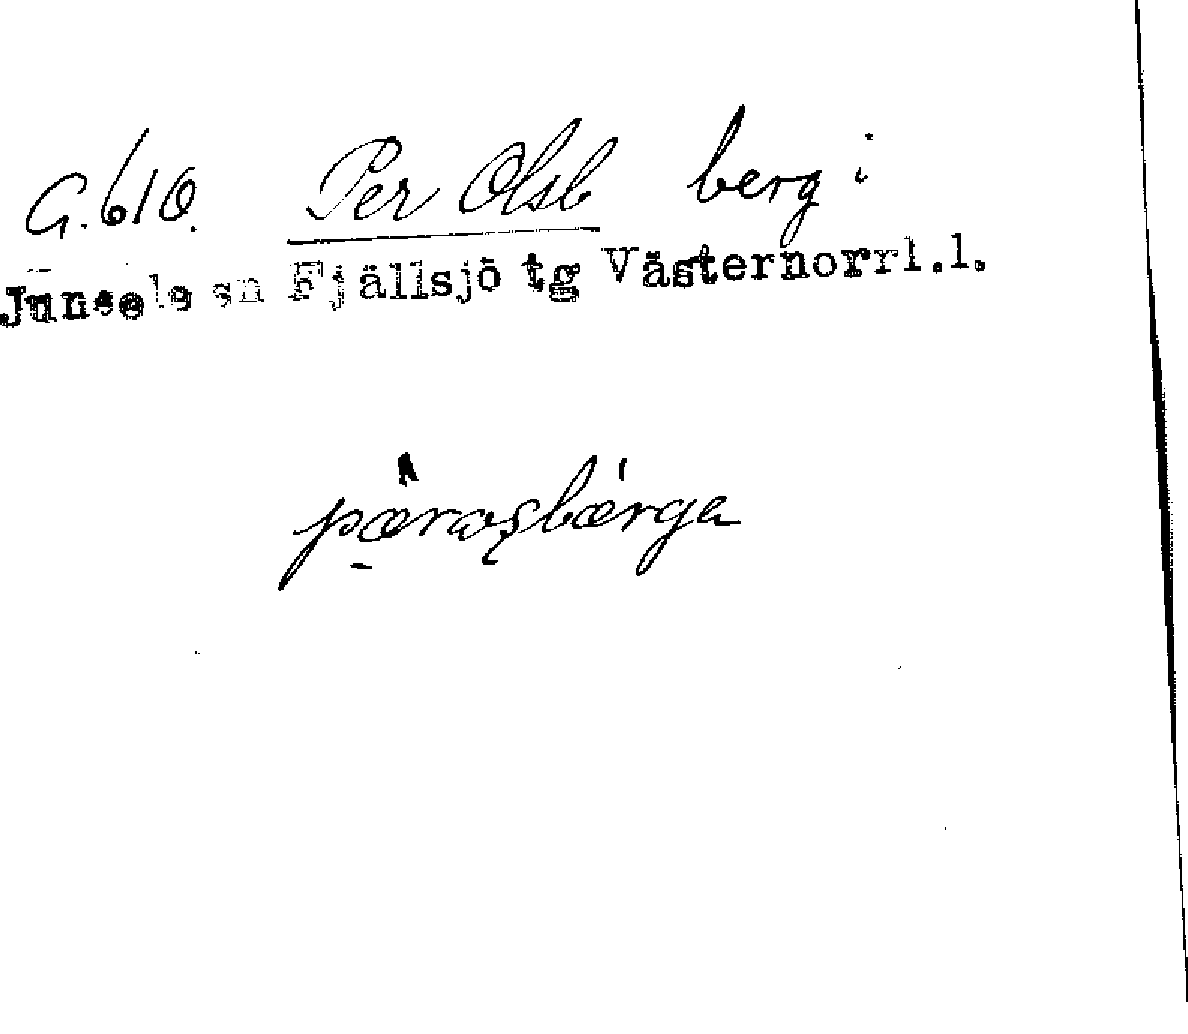 G.610. Per Olsb berg i
Junsele sn Fjällsjö tg Västernorrl.l.